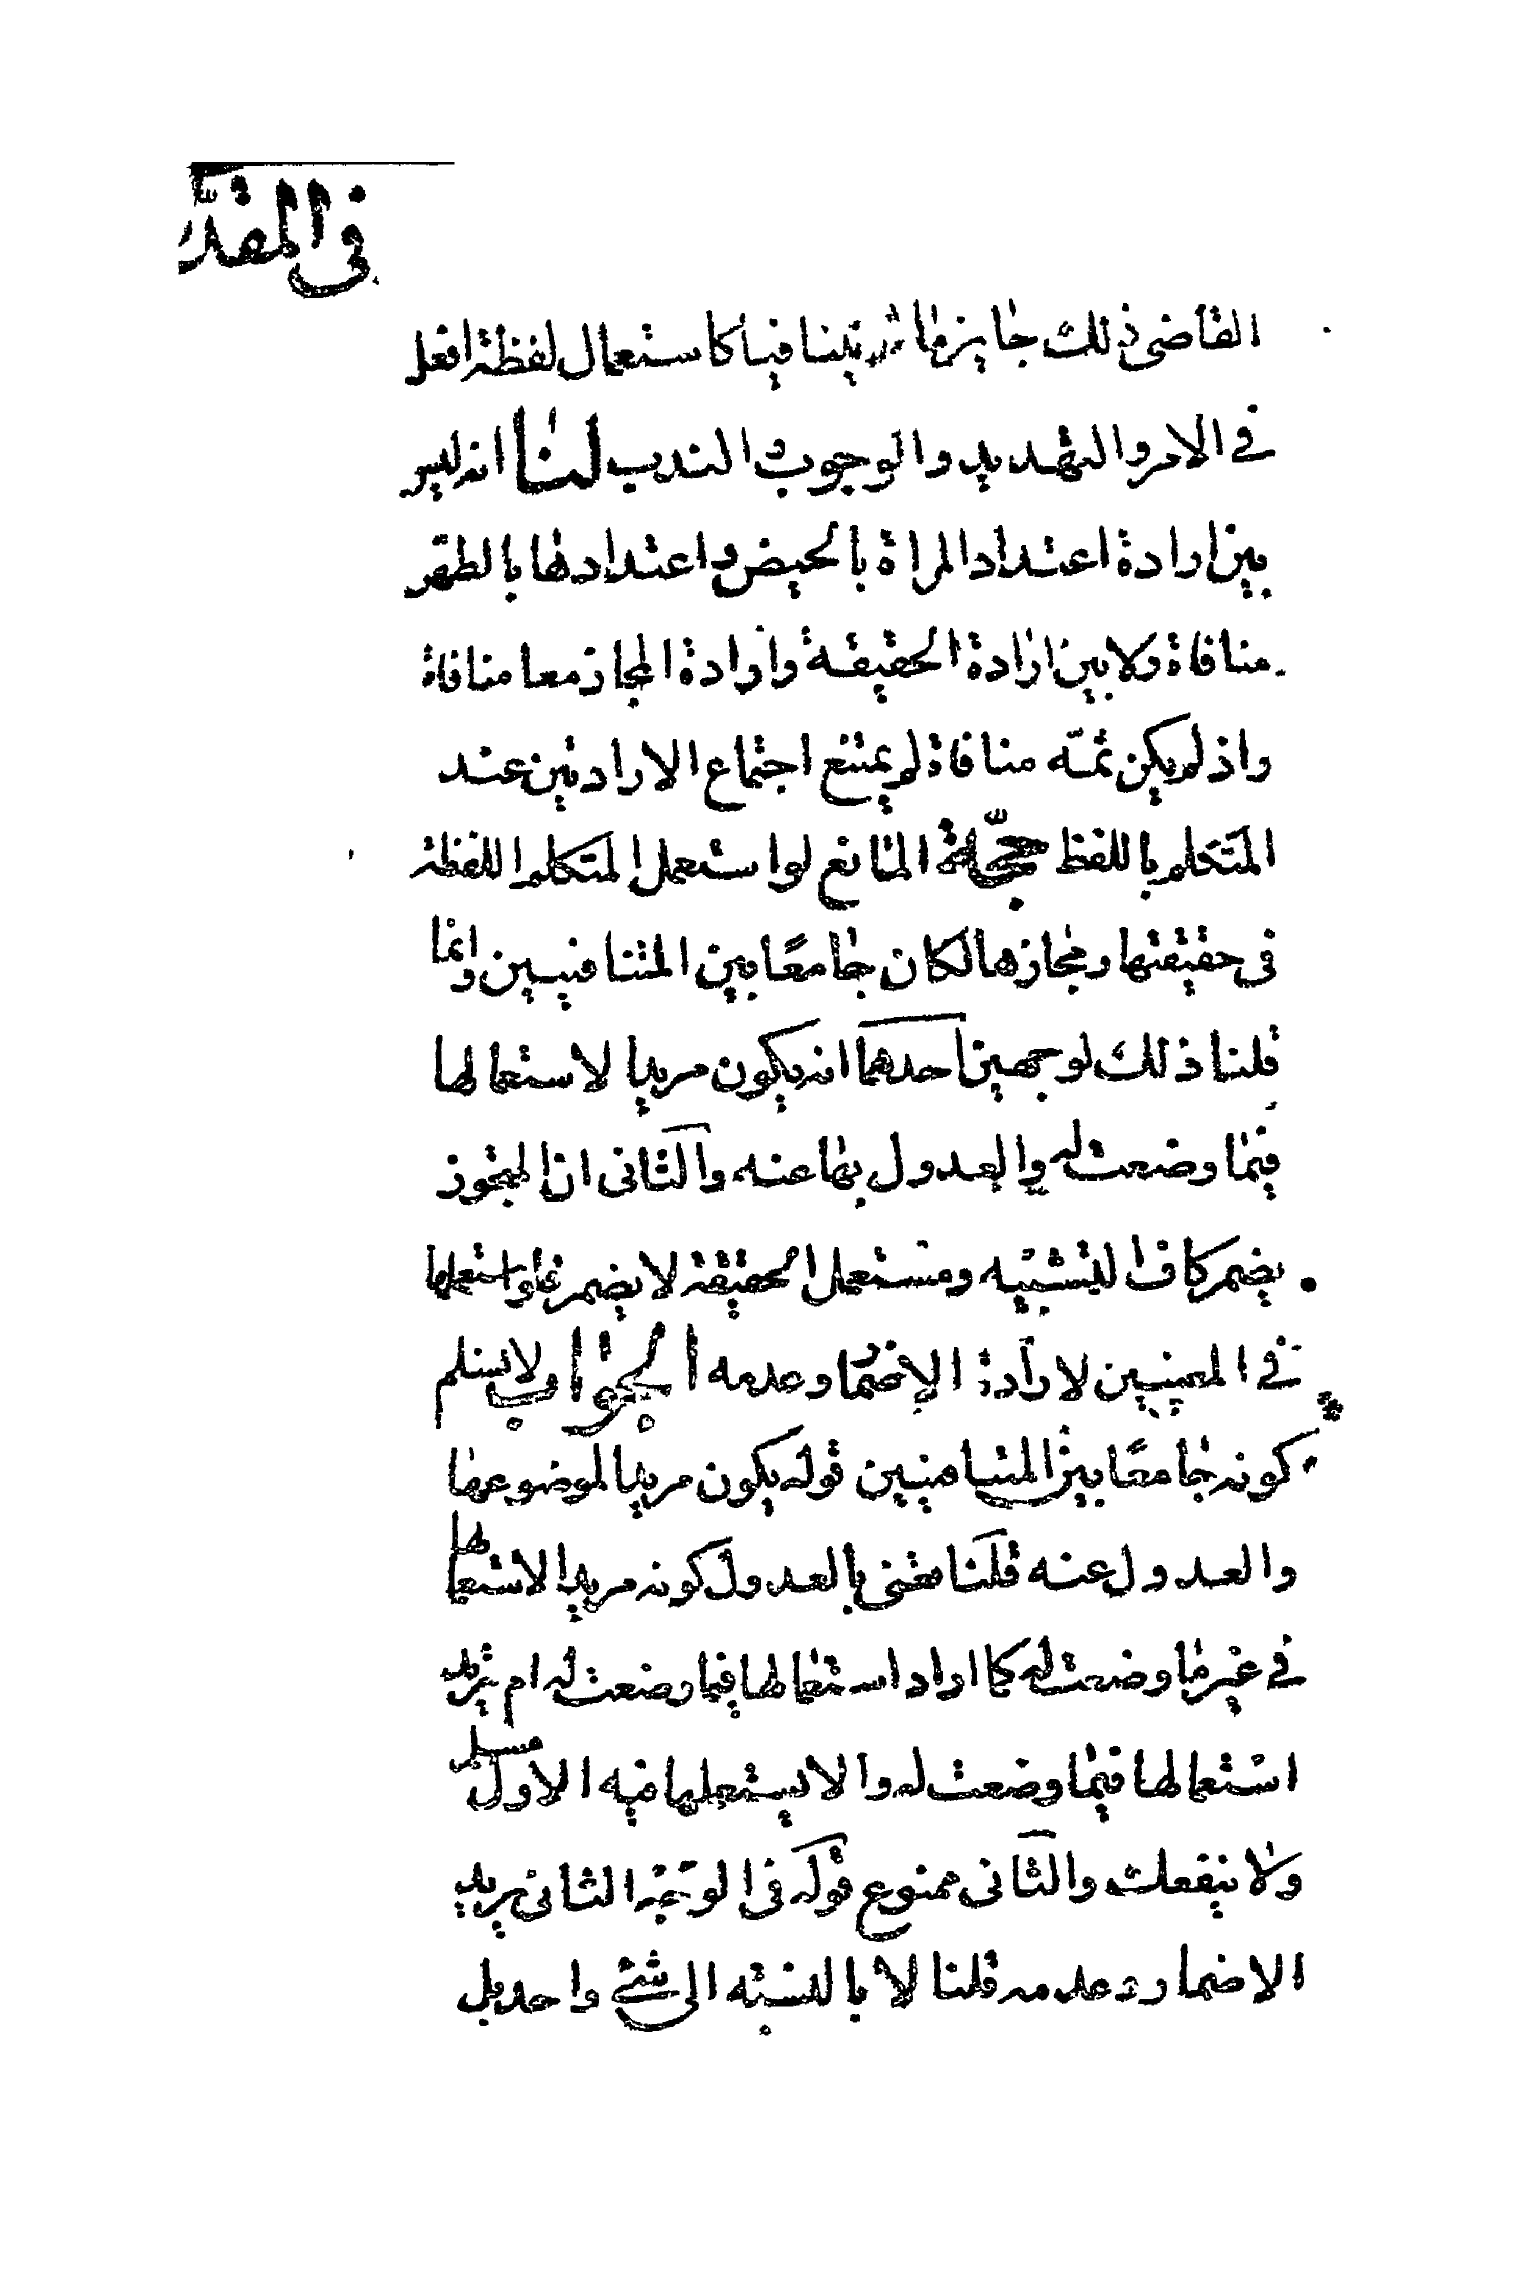 في المقدّ
القاضى ذلك جايز ما لم يتنافيا كاستعمال لفظة افعل
في الامر والتهديد والوجوب والندب لنا انه ليس
بين ارادة اعتداد المراة بالحيض واعتدادها بالطهر
منافاة ولا بين ارادة الحقيقة وارادة المجاز معا منافاة
واذ لم يكن ثمّه منافاة لم يمتنع اجتماع الارادتين عند
المتكلم باللفظ حجّة المانع لو استعمل المتكلم اللفظة
في حقيقتها ومجازها لكان جامعًا بين المتنافيين وانما
قلنا ذلك لوجهين احدهما انه يكون مريدا لاستعمالها
فيما وضعت له والعدول بها عنه والثاني ان المجوز
يضمر كاف التشبيه ومستعمل الحقيقة لا يضمر فلو استعملها
في المعنيين لاراد الاضمار وعدمه الجواب ولا يسلم
كونه جامعًا بين المتنافيين قوله يكون مريدا لموضوعها
والعدول عنه قلنا معنى بالعدول كونه مريدا لاستعمالها
في غير ما وضعت له كما اراد استعمالها فيما وضعت له ام يريد
استعمالها فيما وضعت له والا يستعملها فيه الاول مسلم
ولا ينفعك والثاني ممنوع قوله في الوجه الثاني يريد
الاضمار وعدمه قلنا لا بالنسبه الى شئ واحد بل